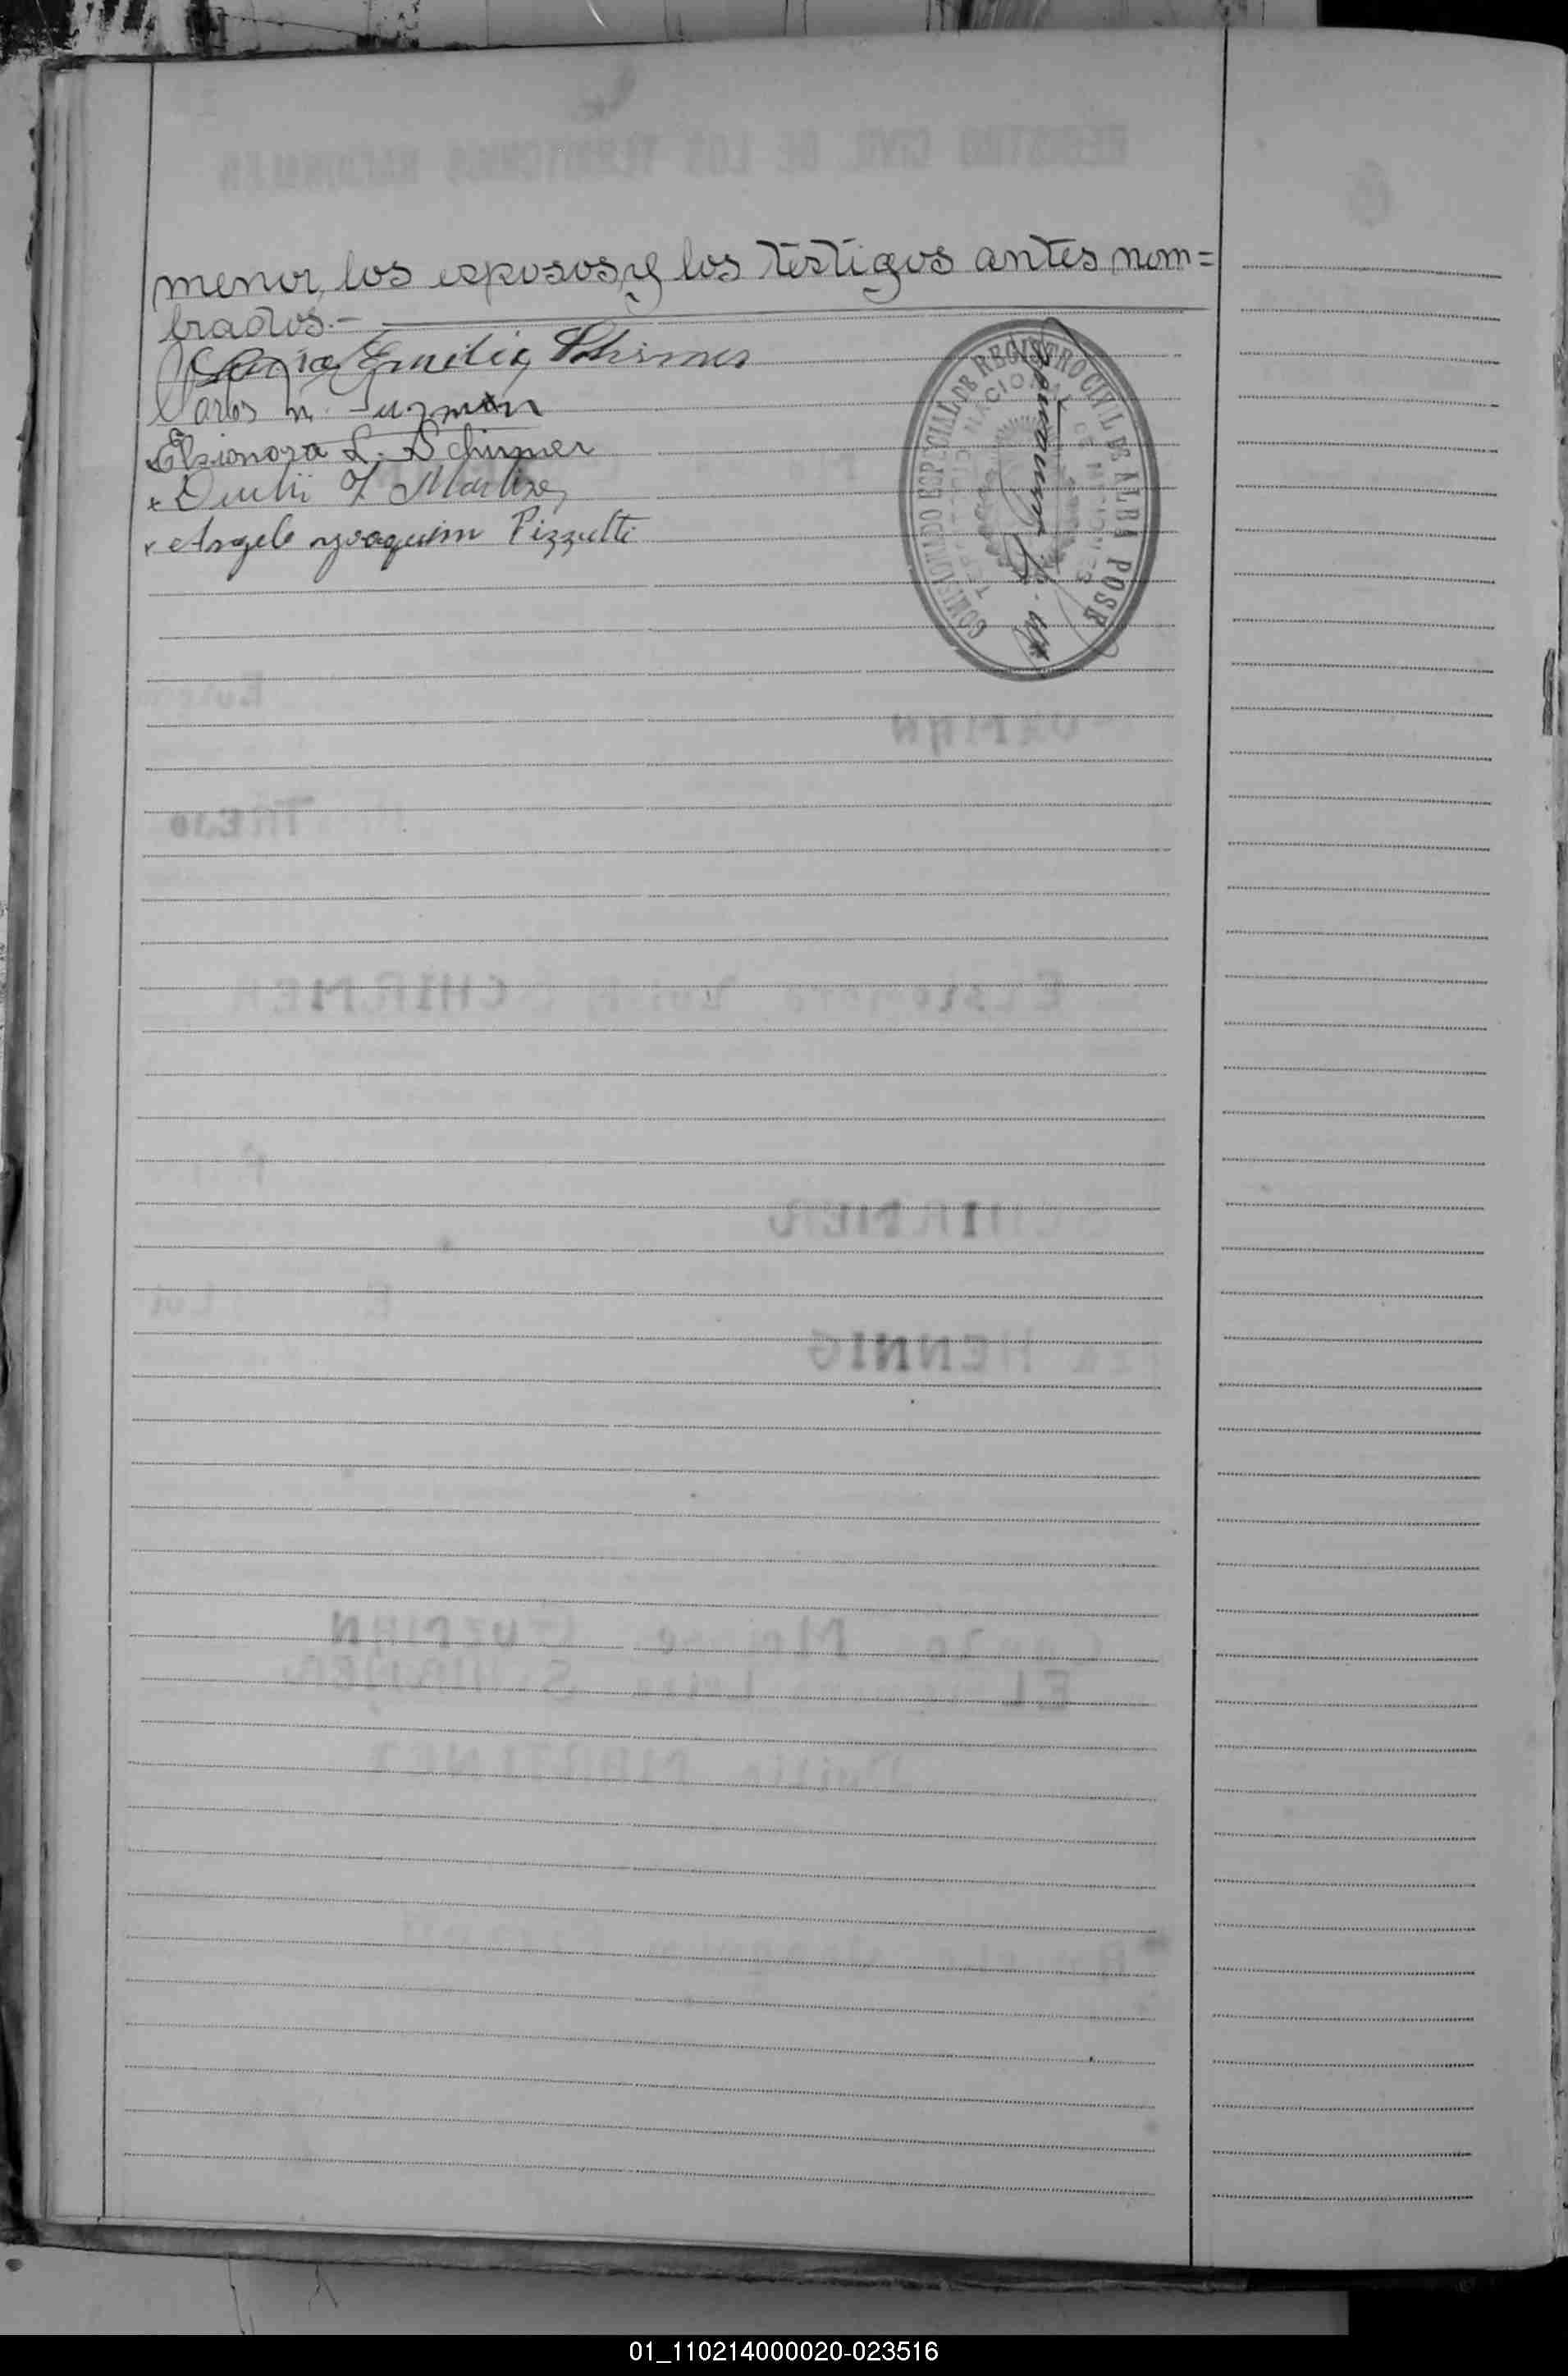 menor, los esposos, y los testigos antes nom=
brados.-
Maria Emilia Schirmer
Carlos M. Guzmán
Elsionora L. Schirmer
x Duilio J Martinez
x Angelo Joaquim Pizzutti
COMISIONADO ESPECIAL DE REGISTRO CIVIL DE ALBA POSSE
TERRITORIO NACIONAL DE MISIONES
01_110214000020-023516